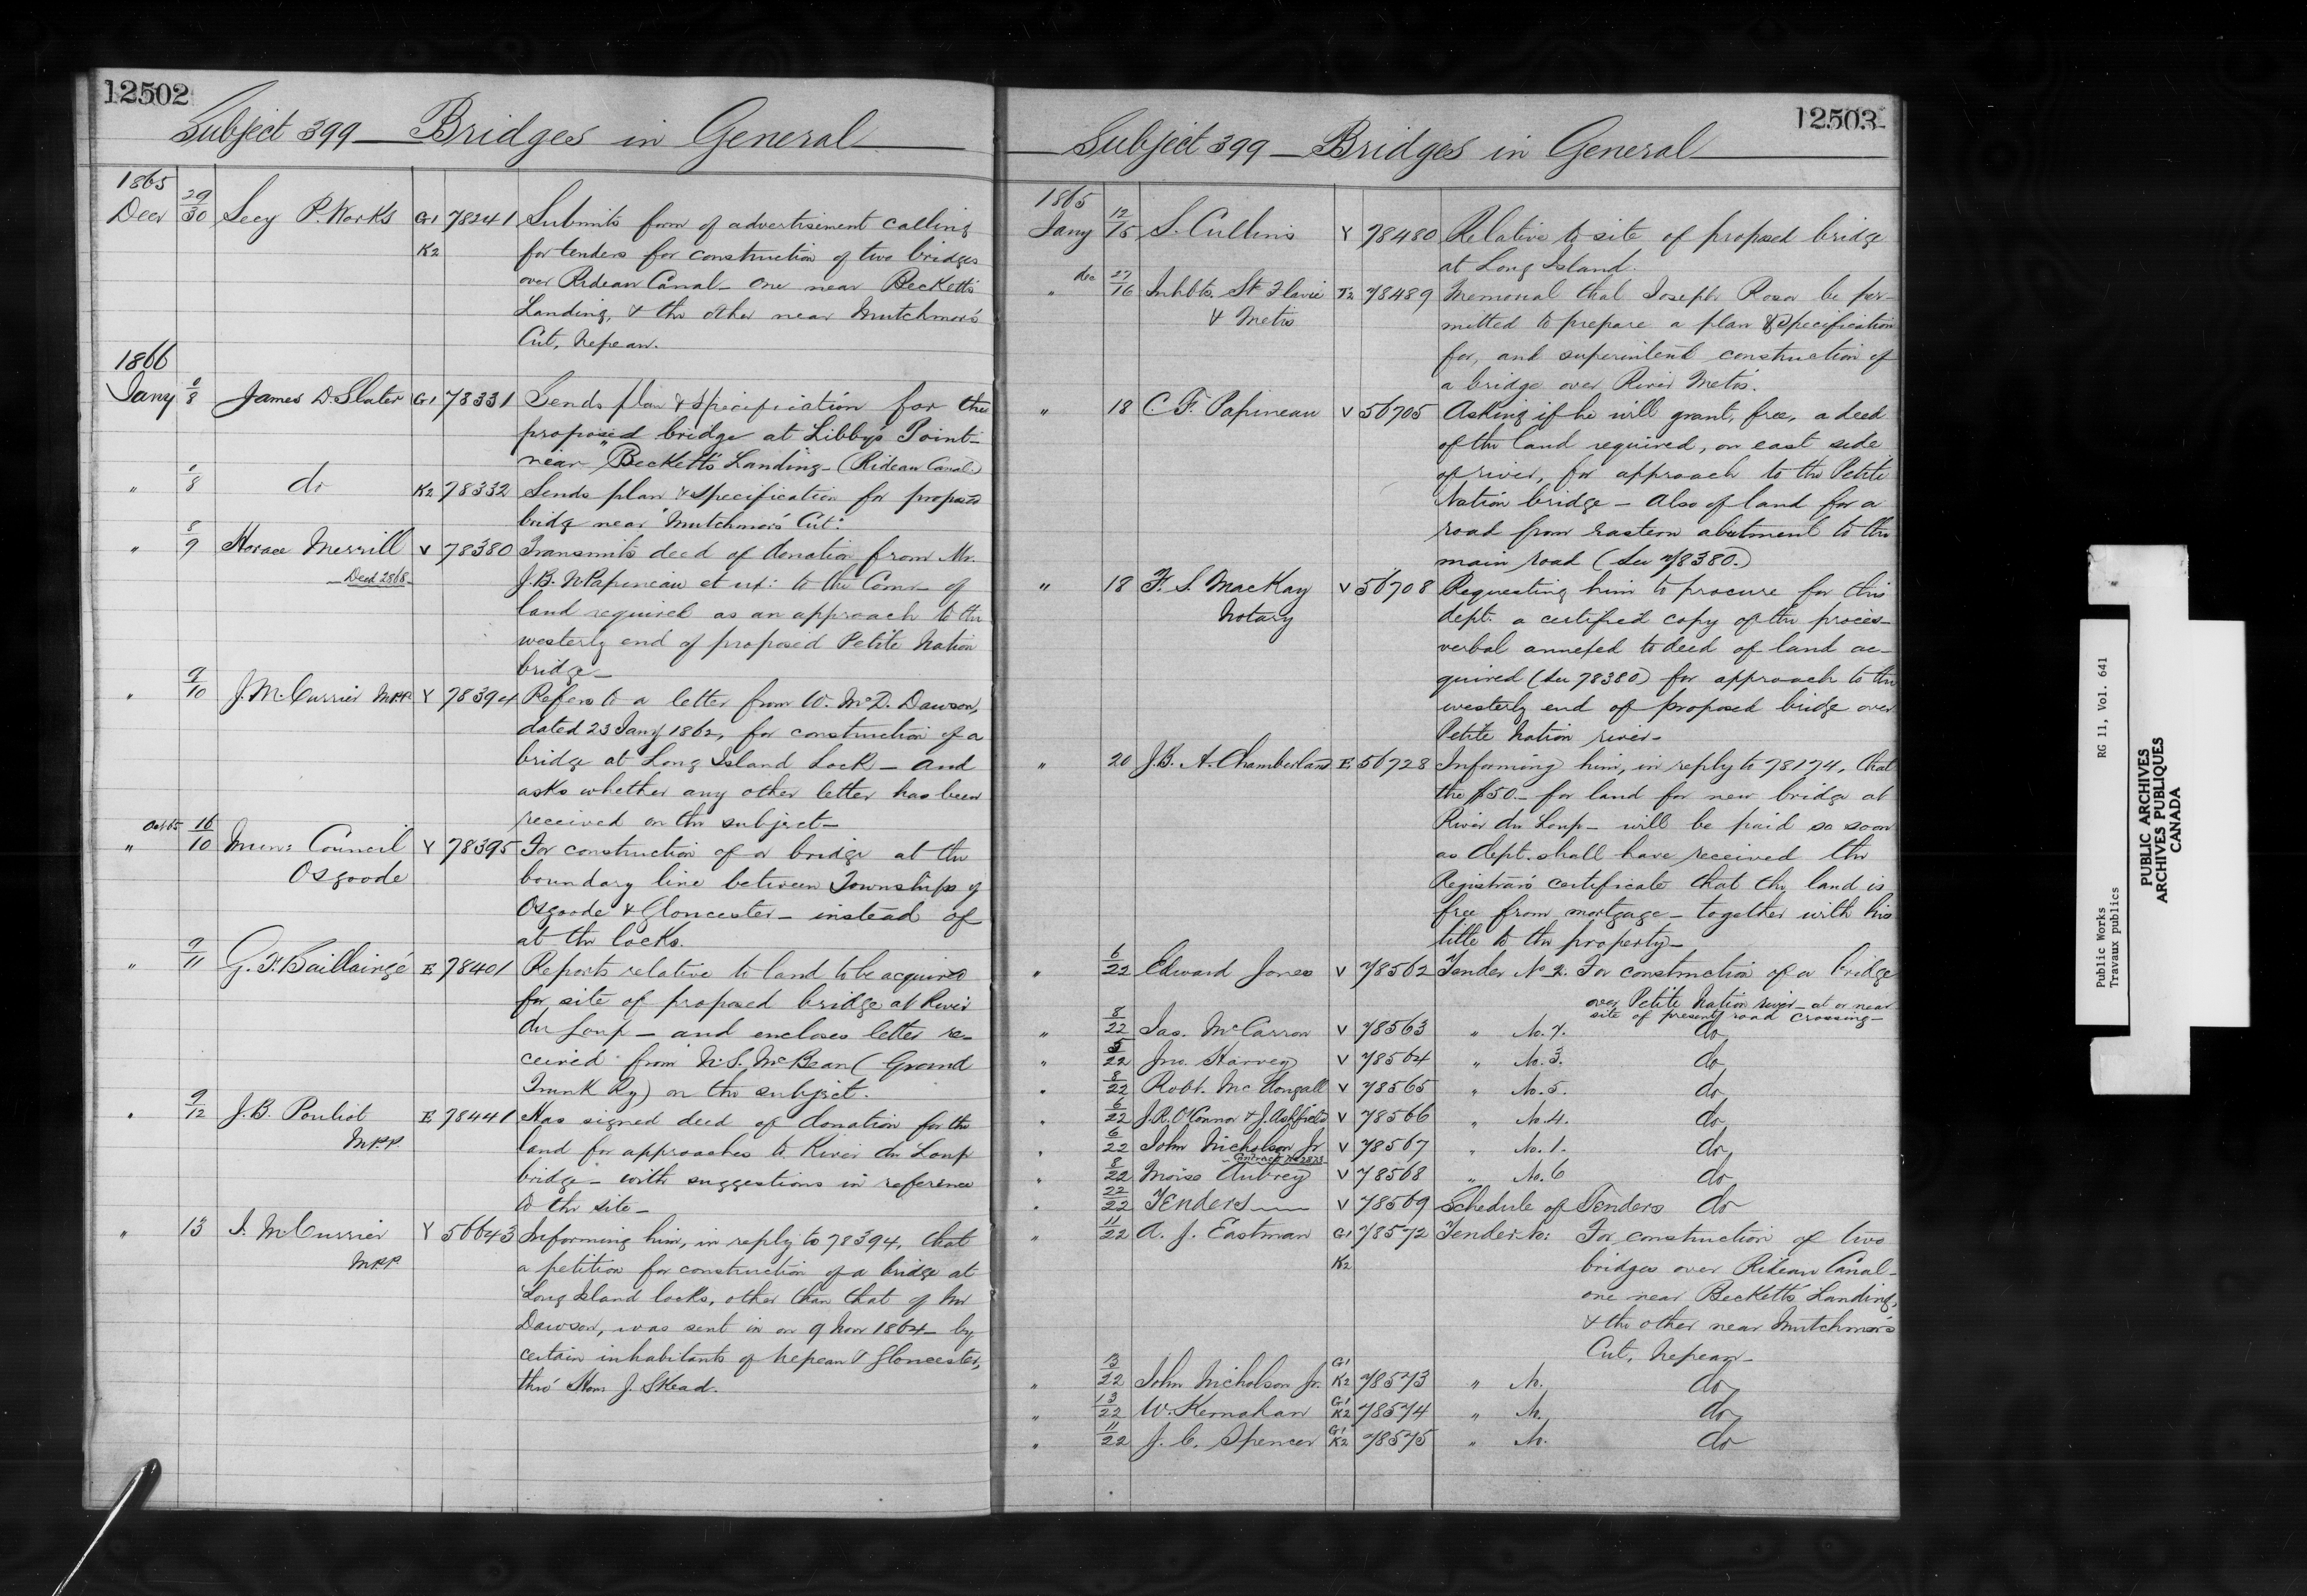 12502
Subject 399 — Bridges in General
1865
Decr 29/30 Secy P. Works G1 78241 Submits form of advertisement calling
K2 for tenders for construction of two bridges
over Rideau Canal – one near Becketts
Landing, & the other near Mutchmor's
Cut, Nepean.
1866
Jany 6/8 James D. Slater G1 78331 Sends plan & specification for the
proposed bridge at Libby's Point –
near "Beckett's Landing – (Rideau Canal)
" 6/8 do K2 78332 Sends plan & specification for proposed
bridg near "Mutchmor's Cut".
" 8/9 Horace Merrill V 78380 Transmits deed of donation from Mr.
Deed 2868 J.B. N Papineau et ux: to the Comr – of
land required as an approach to the
westerly end of proposed Petite Nation
bridge –
" 9/10 J.M. Currier M.P.P. Y 78394 Refers to a letter from W. McD. Dawson,
dated 23 Jany 1862, for construction of a
bridge at Long Island Lock – and
asks whether any other letter has been
received on the subject –
Oct 65 16
" /10 Mun: Council Y 78395 For construction of a bridge at the
Osgoode boundary line between Townships of
Osgoode & Gloucester – instead of
at the locks.
" 9/11 G. F. Baillairgé E 78401 Reports relative to land to be acquired
for site of proposed bridge at River
du Loup – and encloses letter re-
ceived from N. S. McBean (Grand
Trunk Ry) on the subject.
" 9/12 J. B. Pouliot E 78441 Has signed deed of donation for the
M.P.P. land for approaches to River du Loup
bridge – with suggestions in reference
to the site –
" 13 J. M Currier Y 56643 Informing him, in reply to 78394, that
M.P.P. a petition for construction of a bridge at
Long Island locks, other than that of Mr
Dawson, was sent in on 9 Novr 1864 – by
certain inhabitants of Nepean & Gloucester,
thro' Hon J. Skead.
12503
Subject 399 — Bridges in General
1865
Jany 12/15 S. Cullins Y 78480 Relative to site of proposed bridge
at Long Island.
dec 27
" /16 Inhbts. St Flavie T2 78489 Memorial that Joseph Rosa be per-
& Metis mitted to prepare a plan & specification
for, and superintend construction of
a bridge over River Metis.
" 18 C. F. Papineau V 56705 Asking if he will grant, free, a deed
of the land required, on east side
of river, for approach to the Petite
Nation bridge – also of land for a
road from eastern abutment to the
main road (See 78380.)
" 18 F. S. MacKay V 56708 Requesting him to procure for this
Notary dept. a certified copy of the proces-
verbal annexed to deed of land ac-
quired (See 78380) for approach to the
westerly end of proposed bridge over
Petite Nation river –
" 20 J. B. A. Chamberland E 56728 Informing him, in reply to 78174, that
the $50 – for land for new bridge at
River du Loup – will be paid so soon
as dept. shall have received the
Registrar's certificate that the land is
free from mortgage – together with his
title to the property –
" 6/22 Edward Jones V 78562 Tender No 2. For construction of a bridge
over Petite Nation river – at or near
site of present road crossing –
" 8/22 Jas. McCarron V 78563 " No. 7. do
" 5/22 Jno. Harvey V 78564 " No. 3. do
" 8/22 Robt. McDongall V 78565 " No. 5. do
" 6/22 J.R. O'Connor & J. Ashfield V 78566 " No. 4. do
" 6/22 John Nicholson Jr V 78567 " No. 1. do
Contract No 2873
" 8/22 Moise Aubrey V 78568 " No. 6 do
" 22/22 Tenders V 78569 Schedule of Tenders do
" 11/22 A. J. Eastman G1 78572 Tender No: For construction of two
K2 bridges over Rideau Canal –
one near Becketts Landing,
& the other near Mutchmor's
Cut, Nepean –
" 13/22 John Nicholson Jr. G1 K2 78573 " No. do
" 13/22 W. Kernahan G1 K2 78574 " No. do
" 11/22 J. C. Spencer G1 K2 78575 " No. do
Public Works RG 11, Vol. 641
Travaux publics
PUBLIC ARCHIVES
ARCHIVES PUBLIQUES
CANADA